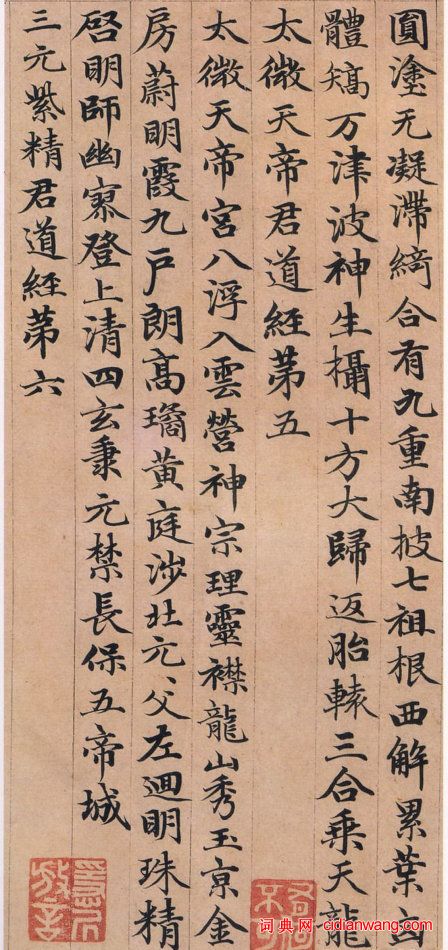 圓塗无凝滯綺合有九重南披七祖根西解累葉凶
體矯万津波神生攝十方大歸返胎轅三合乘天龍
太微天帝君道經苐五
太微天帝宮八浮入雲營神宗理靈襟龍山秀玉京金
房蔚明霞九戶朗高瓊黃庭涉壯元父左迴明珠精
啓明師幽寥登上清四玄秉元禁長保五帝城
三元紫精君道經苐六
词典网：cidianwang.com